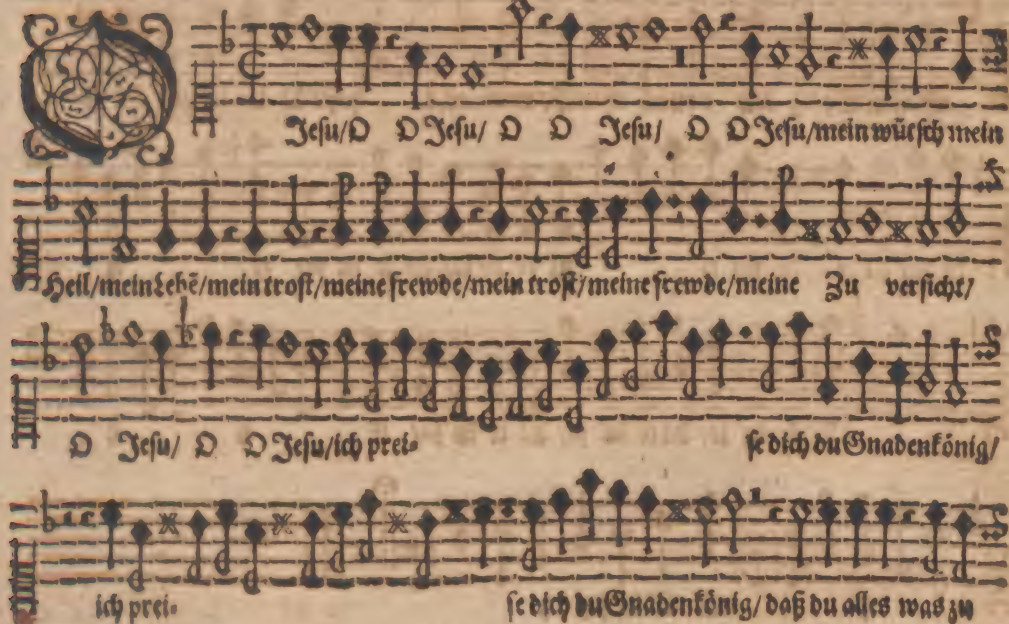 O Jesu/ O O Jesu/ O O Jesu/ O O Jesu/ mein wütsch mein
Heil/ mein Lebē/ mein trost/ meine frewde/ mein trost/ meine frewde/ meine Zu versicht/
O Jesu/ O O Jesu/ ich prei- se dich du Gnadenkönig/
ich prei- se dich du Gnadenkönig/ daß du alles was zu